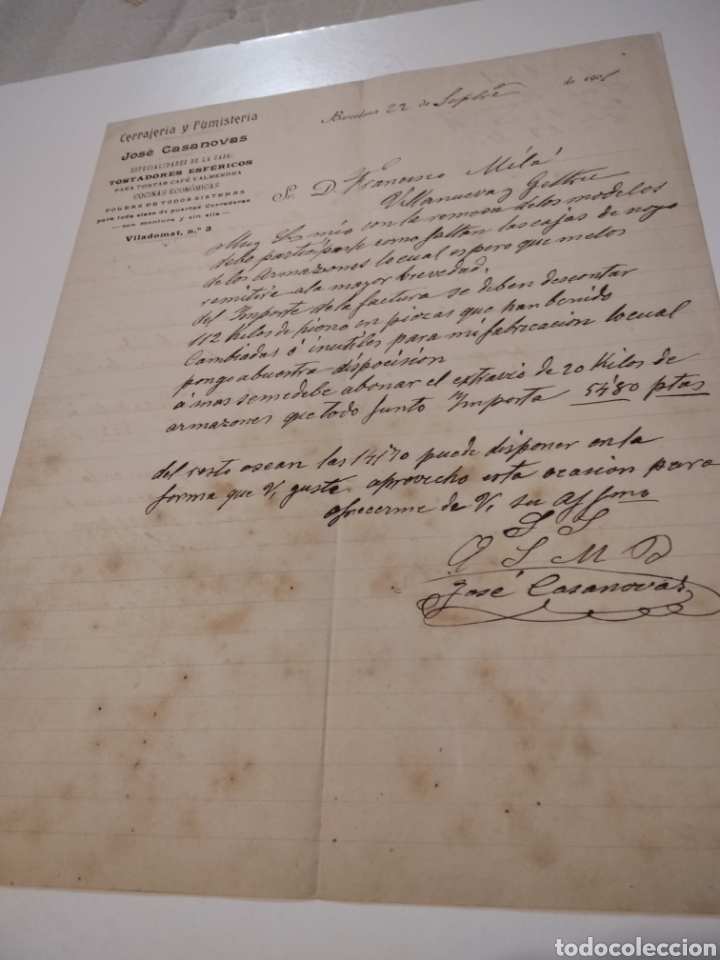 Cerrajeria y Fumisteria
José Casanovas
ESPECIALIDADES DE LA CASA:
TOSTADORES ESFÉRICOS
PARA TOSTAR CAFÉ Y ALMENDRA
COCINAS ECONÓMICAS
POLEAS DE TODOS SISTEMAS
para toda clase de puertas Correderas
con montura y sin ella
Viladomat, n.º 3
Barcelona 22 de Septbre de 190
Sr. D. Francisco Milá
Villanueva y Geltru
Muy Sr mio con la remesa delos modelos
debo participarle como faltan las cajas de noyo
de los armazones locual espero que melos
remitire ala mayor brevedad.
del Importe dela factura se deben descontar
112 Kilos de piezas que han benido
Cambiadas ó inutiles para mi fabricacion locual
pongo abuestra disposición
á mas semedebe abonar el extravio de 20 Kilos de
armazones que todo junto Importa 54'80 ptas
del resto osean las 141'70 puede disponer en la
forma que V, guste aprovecho esta ocasion para
ofrecerme de V, su affmo
S S
Q S M B
José Casanovas
todocoleccion